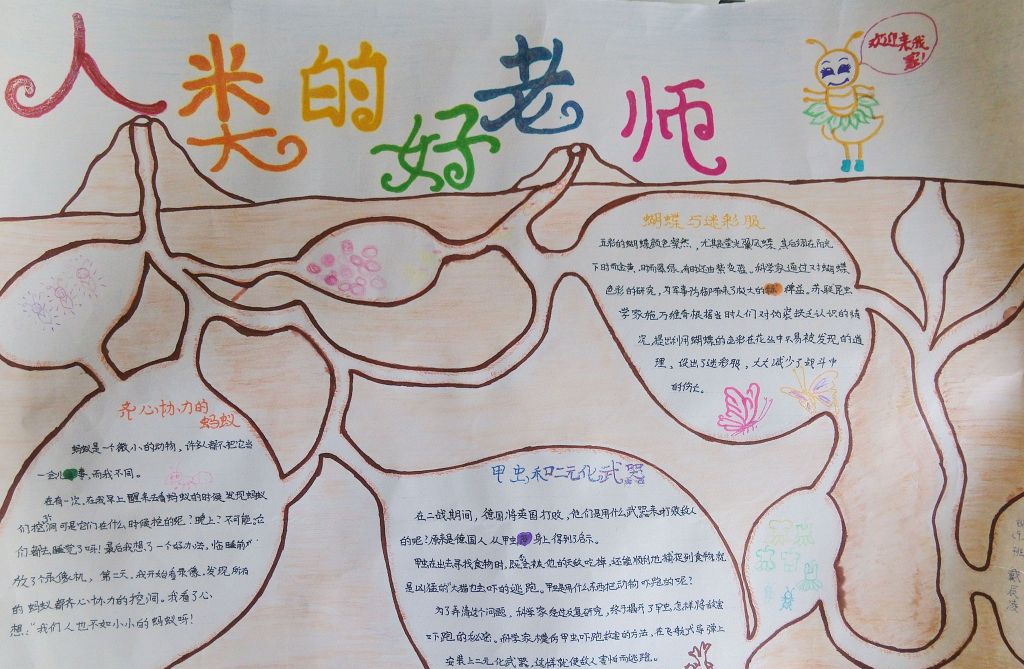 人类的好老师
欢迎来我
家!
蝴蝶与迷彩服
五彩的蝴蝶颜色粲然，尤其是萤光翼凤蝶，其后翅在阳光
下时而金黄，时而翠绿，有时还由紫变蓝。科学家通过对蝴蝶
色彩的研究，为军事防御带来了极大的裨益。苏联昆虫
学家施万维奇根据当时人们对伪装缺乏认识的情
况，提出利用蝴蝶的色彩在花丛中不易被发现的道
理，设出了迷彩服，大大减少了战斗中
的伤亡。
齐心协力的
蚂蚁
蚂蚁是一个微小的动物，许多人都不把它当
一会儿事，而我不同。
在有一次，在我早上醒来去看蚂蚁的时候发现蚂蚁
们挖洞可是它们在什么时候挖的呢？晚上？不可能，它
们都去睡觉了呀！最后我想了一个好办法，临睡前
放了个录像机，第二天，我开始看录像，发现所有
的蚂蚁都齐心协力的挖洞。我看了心
想：“我们人也不如小小的蚂蚁呀！
甲虫和二元化武器
在二战期间，德国将英国打败，他们是用什么武器来打败敌人
的呢？原来是德国人从甲虫身上得到了启示。
甲虫在出去寻找食物时，既没被他的天敌吃掉，还能顺利地捕捉到食物就
是凶猛的大猫也会吓的逃跑。甲虫是用什么东西把动物吓跑的呢？
为了弄清这个问题，科学家经过反复研究，终于揭开了甲虫怎样将敌害
吓跑的秘密。科学家模仿甲虫吓跑敌害的方法，在飞航式导弹上
安装上二元化武器，这样就使敌人害怕而逃跑。